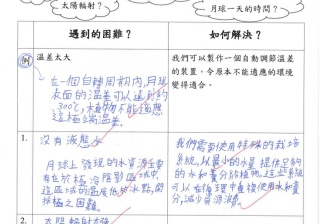 太陽輻射？
月球一天的時間？
遇到的困難？
如何解決？
例
溫差太大
在一個自轉周期內，月球
表面的溫差可以達到約
300℃，植物不能適應
這極端溫差。
我們可以製作一個自動調節溫差
的裝置。令原本不能適應的環境
變得適合。
1.
沒有液態水
月球上發現的水資源主要
存在於極冷陰影區域中，
這區域的溫度低於冰點，開
採極之困難。
我們需要使用特殊的栽培
系統，以最小的水量提供足夠
的水和養分於植物，這些系統
可以在循環中重複使用水和養
分，減少資源消耗。
2.
太陽輻射太強